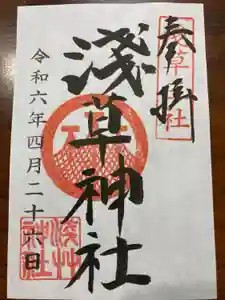 奉拝
浅草神社
淺草神社
令和六年四月二十六日
浅草神社